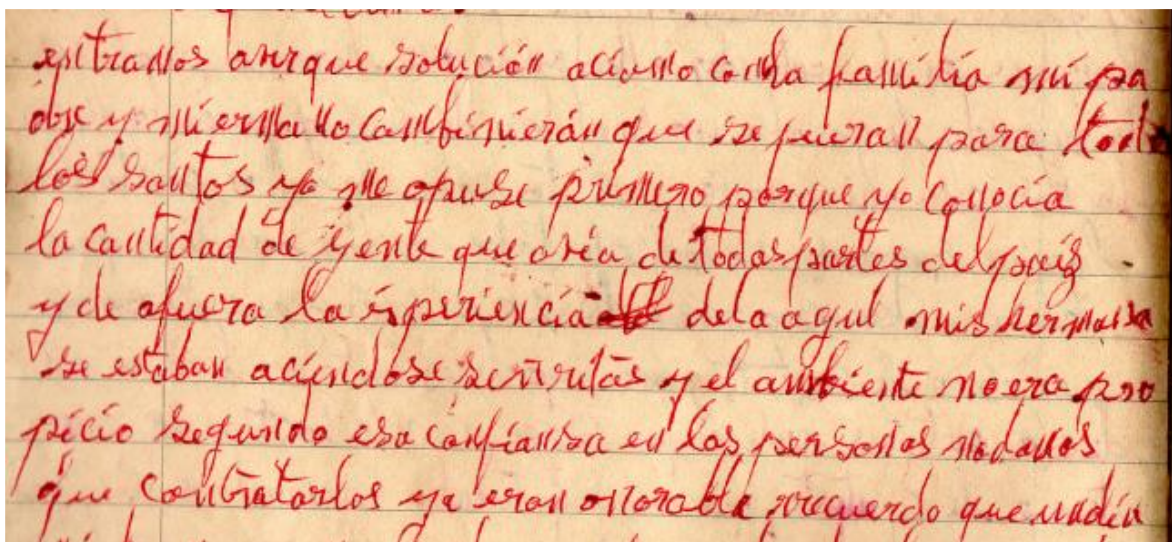 entramos aunque solución aciamo con la familia mi pa
dre y miermano combinierán que se fueran para todo
los santos yo me opuse primero porque yo conocía
la cantidad de yente que avia de todas partes del paiz
y de afuera la esperiencia de la agul mis hermana
se estaban aciendose senritas y el ambiente no era pro
picio segundo esa confiansa en las personas nadamos
que contratarlos ya eran onorable recuerdo que un dia